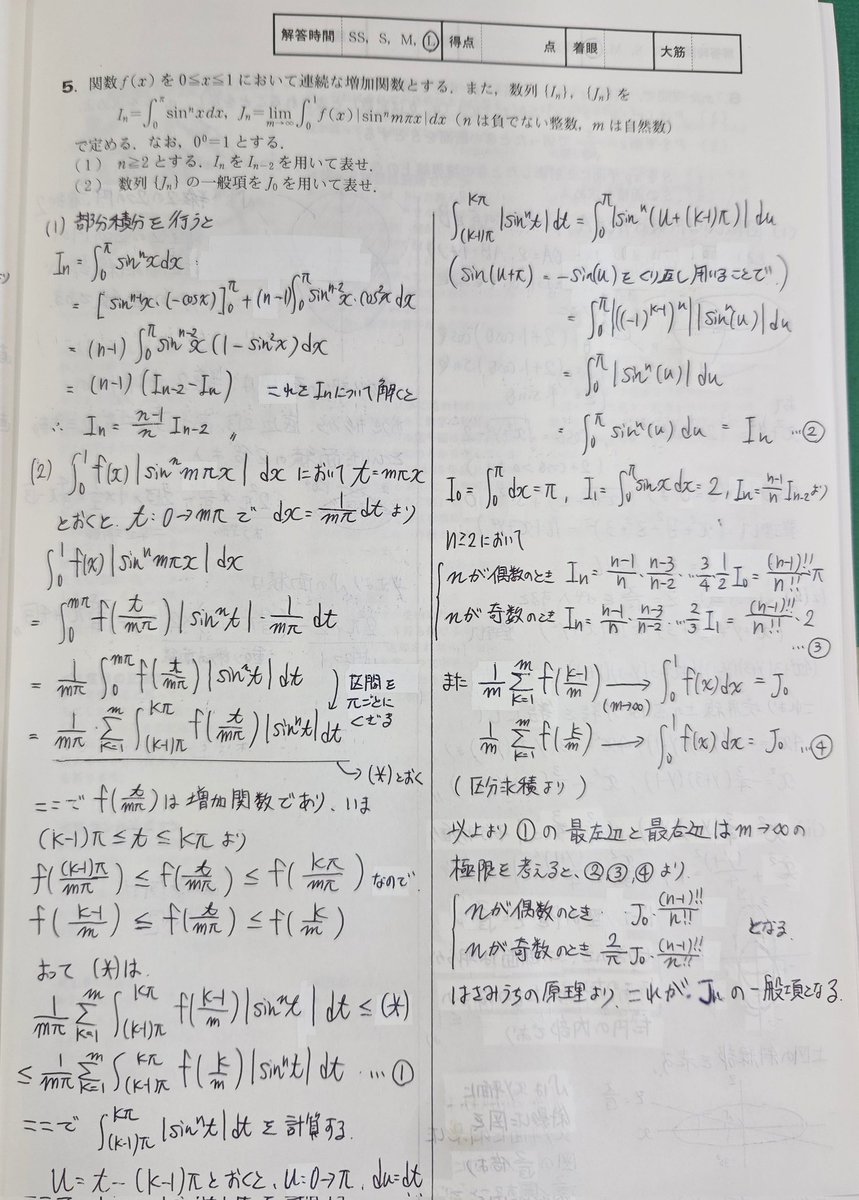 解答時間 SS, S, M, L 得点 点 着眼 大筋
5. 関数 f(x) を 0≦x≦1 において連続な増加関数とする．また，数列 {Iₙ}，{Jₙ} を
Iₙ=∫₀^π sinⁿxdx, Jₙ=lim_{m→∞}∫₀¹ f(x)|sinⁿmπx|dx (n は負でない整数，m は自然数)
で定める．なお，0⁰=1 とする．
(1) n≧2 とする．Iₙ を Iₙ₋₂ を用いて表せ．
(2) 数列 {Jₙ} の一般項を J₀ を用いて表せ．
(1) 部分積分を行うと
Iₙ = ∫₀^π sinⁿxdx
= [sinⁿ⁻¹x・(-cosx)]₀^π + (n-1)∫₀^π sinⁿ⁻²x・cos²x dx
= (n-1) ∫₀^π sinⁿ⁻²x (1-sin²x) dx
= (n-1) (Iₙ₋₂-Iₙ) これを Iₙ について解くと
∴ Iₙ = (n-1)/n Iₙ₋₂ 〃
(2) ∫₀¹ f(x)|sinⁿmπx| dx において t=mπx
とおくと, t:0→mπ で dx=1/(mπ) dt より
∫₀¹ f(x)|sinⁿmπx|dx
= ∫₀^{mπ} f(t/(mπ))|sinⁿt|・1/(mπ) dt
= 1/(mπ) ∫₀^{mπ} f(t/(mπ))|sinⁿt|dt
区間を
πごとに
くぎる
= 1/(mπ)・Σ_{k=1}^{m} ∫_{(k-1)π}^{kπ} f(t/(mπ))|sinⁿt|dt
→(*)とおく
ここで f(t/(mπ)) は増加関数であり、いま
(k-1)π ≤ t ≤ kπ より
f((k-1)π/(mπ)) ≤ f(t/(mπ)) ≤ f(kπ/(mπ)) なので
f((k-1)/m) ≤ f(t/(mπ)) ≤ f(k/m)
よって (*)は、
1/(mπ) Σ_{k=1}^{m} ∫_{(k-1)π}^{kπ} f((k-1)/m)|sinⁿt| dt ≤ (*)
≤ 1/(mπ) Σ_{k=1}^{m} ∫_{(k-1)π}^{kπ} f(k/m)|sinⁿt|dt …①
ここで ∫_{(k-1)π}^{kπ} |sinⁿt|dt を計算する.
u=t-(k-1)π とおくと、u:0→π, du=dt
∫_{(k-1)π}^{kπ} |sinⁿt|dt = ∫₀^π |sinⁿ(u+(k-1)π)| du
(sin(u+π) = -sin(u)をくり返し用いることで)
= ∫₀^π |((-1)^{k-1})ⁿ||sinⁿ(u)|du
= ∫₀^π |sinⁿ(u)| du
= ∫₀^π sinⁿ(u) du = Iₙ …②
I₀ = ∫₀^π dx=π, I₁ = ∫₀^π sinxdx=2, Iₙ=(n-1)/n Iₙ₋₂ より
n≥2において
nが偶数のとき Iₙ = (n-1)/n・(n-3)/(n-2)・…3/4・1/2 I₀ = (n-1)!!/n!! π
nが奇数のとき Iₙ = (n-1)/n・(n-3)/(n-2)・…2/3 I₁ = (n-1)!!/n!!・2
…③
また 1/m Σ_{k=1}^{m} f((k-1)/m) →(m→∞) ∫₀¹ f(x)dx = J₀
1/m Σ_{k=1}^{m} f(k/m) → ∫₀¹ f(x)dx = J₀ …④
(区分求積より)
以上より ①の最左辺と最右辺は m→∞の
極限を考えると、②,③,④より、
nが偶数のとき J₀・(n-1)!!/n!!
nが奇数のとき 2/π J₀・(n-1)!!/n!! となる
はさみうちの原理より、これが Jₙ の一般項となる.